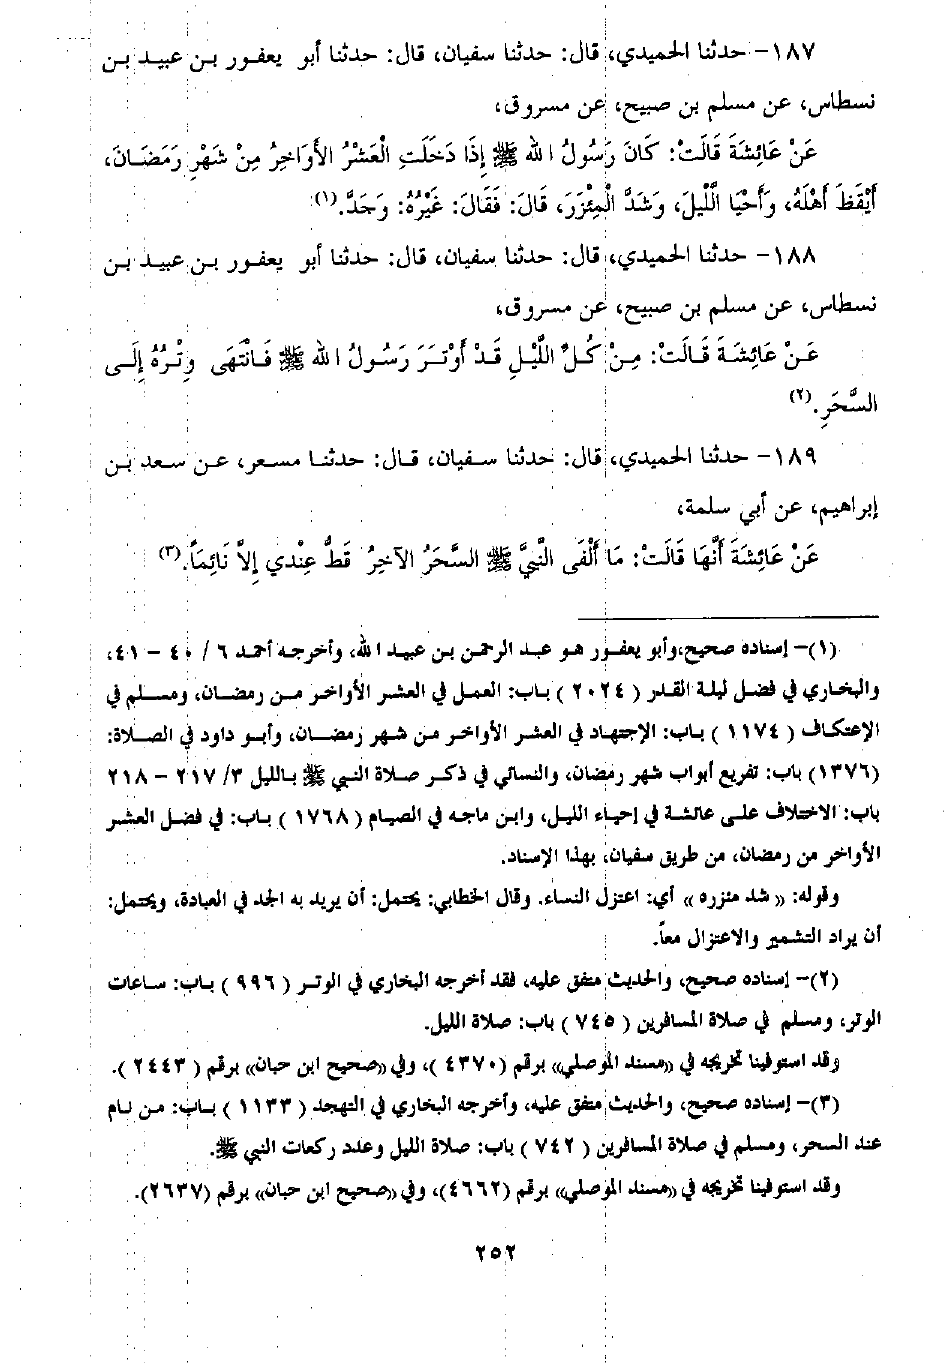 ١٨٧- حدثنا الحميدي، قال: حدثنا سفيان، قال: حدثنا أبو يعفور بن عبيد بن
نسطاس، عن مسلم بن صبيح، عن مسروق،
عَنْ عَائِشَةَ قَالَتْ: كَانَ رَسُولُ الله ﷺ إِذَا دَخَلَتِ الْعَشْرُ الأَوَاخِرُ مِنْ شَهْرِ رَمَضَانَ،
أَيْقَظَ أَهْلَهُ، وَأَحْيَا اللَّيلَ، وَشَدَّ الْمِئْزَرَ، قَالَ: فَقَالَ: غَيْرُهُ: وَجَدَّ.(١)
١٨٨- حدثنا الحميدي، قال: حدثنا سفيان، قال: حدثنا أبو يعفور بن عبيد بن
نسطاس، عن مسلم بن صبيح، عن مسروق،
عَنْ عَائِشَةَ قَالَتْ: مِنْ كُلِّ اللَّيْلِ قَدْ أَوْتَرَ رَسُولُ الله ﷺ فَانْتَهَى وِتْرُهُ إِلَى
السَّحَرِ.(٢)
١٨٩- حدثنا الحميدي، قال: حدثنا سفيان، قال: حدثنا مسعر، عن سعد بن
إبراهيم، عن أبي سلمة،
عَنْ عَائِشَةَ أَنَّهَا قَالَتْ: مَا أَلْفَى النَّبِيَّ ﷺ السَّحَرُ الآخِرُ قَطُّ عِنْدِي إِلاَّ نَائِمَاً.(٣)
(١)- إسناده صحيح،وأبو يعفور هو عبد الرحمن بن عبيد الله، وأخرجه أحمد ٦ / ٤٠ - ٤١،
والبخاري في فضل ليلة القدر ( ٢٠٢٤ ) باب: العمل في العشر الأواخر من رمضان، ومسلم في
الإعتكاف ( ١١٧٤ ) باب: الإجتهاد في العشر الأواخر من شهر رمضان، وأبو داود في الصلاة:
(١٣٧٦) باب: تفريع أبواب شهر رمضان، والنسائي في ذكر صلاة النبي ﷺ بالليل ٣/ ٢١٧ - ٢١٨
باب: الاختلاف على عائشة في إحياء الليل، وابن ماجه في الصيام ( ١٧٦٨ ) باب: في فضل العشر
الأواخر من رمضان، من طريق سفيان، بهذا الإسناد.
وقوله: « شد مئزره » أي: اعتزل النساء. وقال الخطابي: يحتمل: أن يريد به الجد في العبادة، ويحتمل:
أن يراد التشمير والاعتزال معاً.
(٢)- إسناده صحيح، والحديث متفق عليه، فقد أخرجه البخاري في الوتر ( ٩٩٦ ) باب: ساعات
الوتر، ومسلم في صلاة المسافرين ( ٧٤٥ ) باب: صلاة الليل.
وقد استوفينا تخريجه في «مسند الموصلي» برقم (٤٣٧٠ )، وفي «صحيح ابن حبان» برقم ( ٢٤٤٣ ).
(٣)- إسناده صحيح، والحديث متفق عليه، وأخرجه البخاري في التهجد ( ١١٣٣ ) باب: من نام
عند السحر، ومسلم في صلاة المسافرين ( ٧٤٢ ) باب: صلاة الليل وعدد ركعات النبي ﷺ.
وقد استوفينا تخريجه في «مسند الموصلي» برقم (٤٦٦٢)، وفي «صحيح ابن حبان» برقم (٢٦٣٧).
٢٥٢